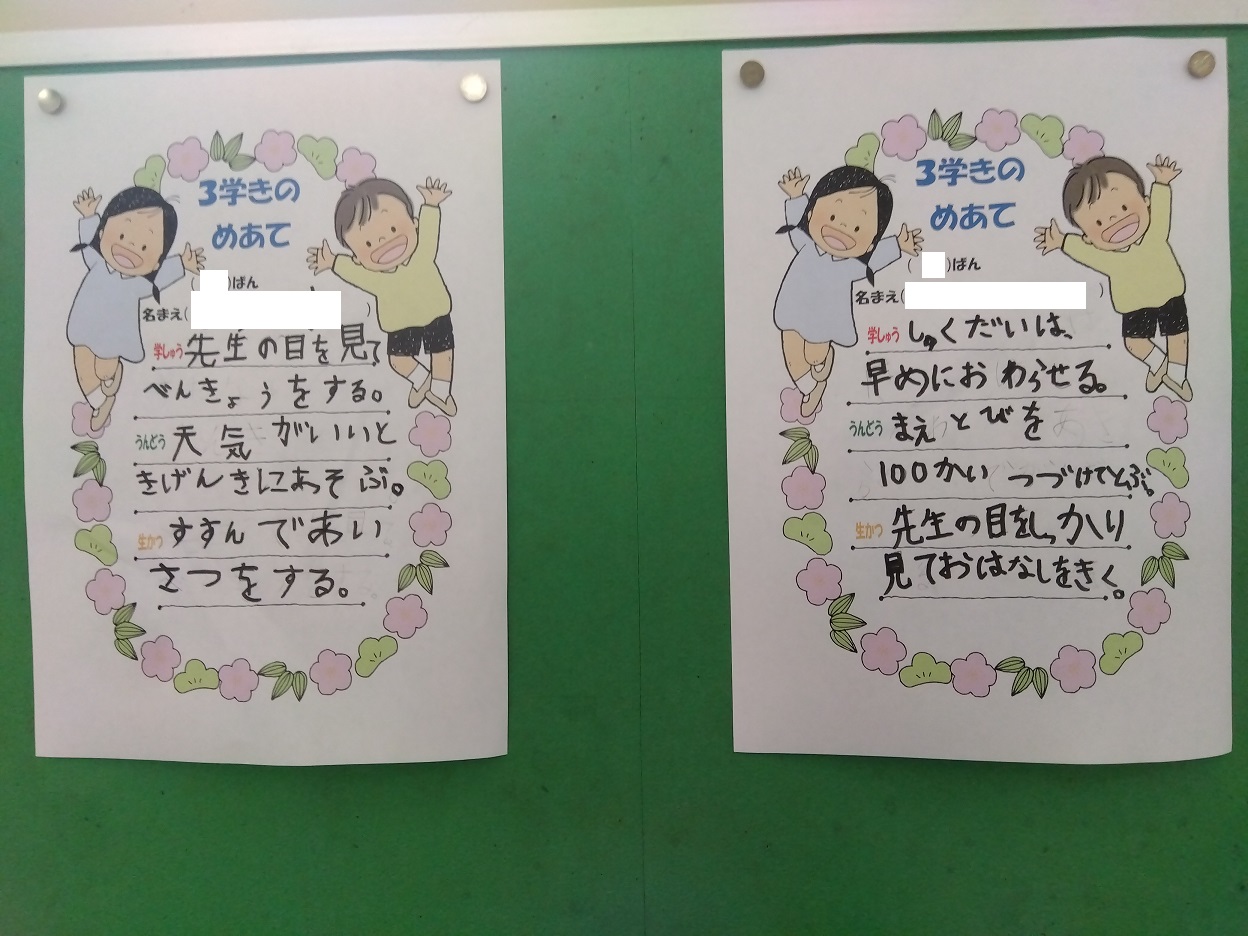 3学きの
めあて
( )ばん
名まえ( )
学しゅう 先生の目を見て
べんきょうをする。
うんどう 天気がいいと
きげんきにあそぶ。
生かつ すすんであい
さつをする。
3学きの
めあて
( )ばん
名まえ( )
学しゅう しゅくだいは、
早めにおわらせる。
うんどう まえとびを
100かいつづけてとぶ。
生かつ 先生の目をしっかり
見ておはなしをきく。